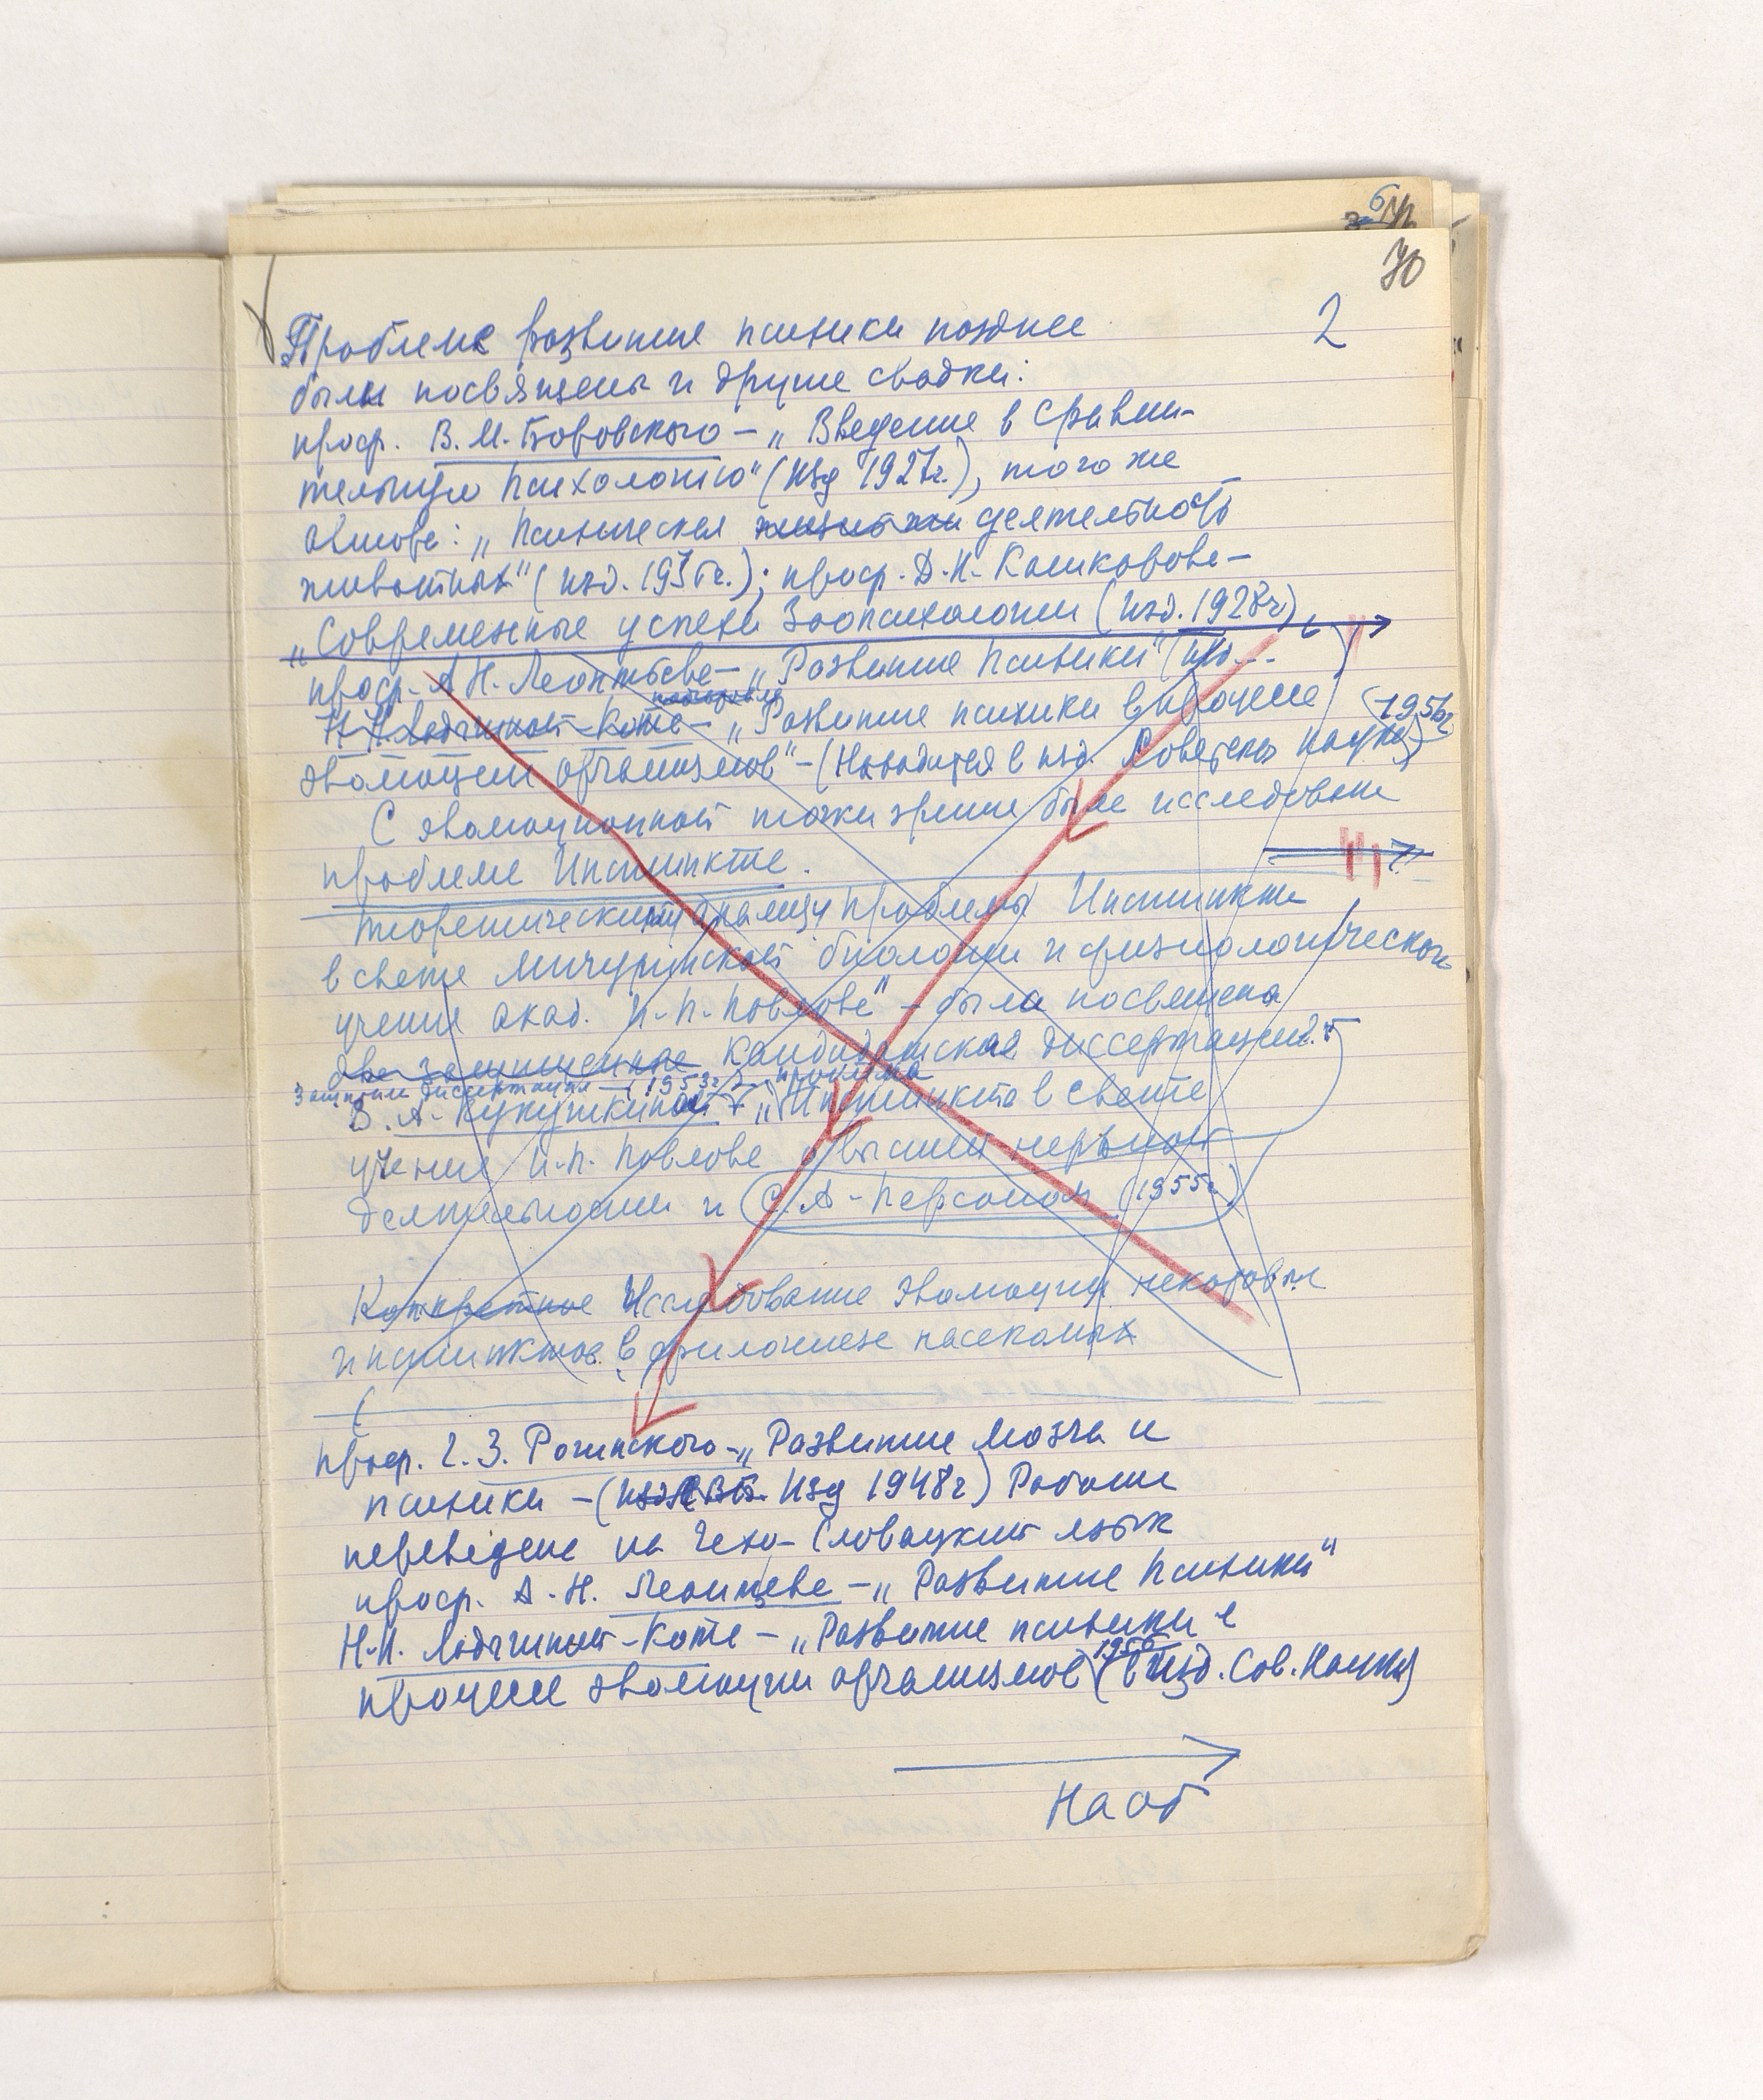 70
2
Проблеме развития психики позднее
были посвящены и другие сводки:
проф. В. М. Боровского – „Введение в сравни-
тельную психологию" (Изд 1927г.), того же
автора: „Психическая жизнь жи деятельность
животных" (изд. 1936г.); проф. Д. Н. Кашкарова –
„Современные успехи Зоопсихологии (Изд. 1928г)
проф. А Н. Леонтьева – „Развитие Психики"
Н Н Ладыгиной-Котс – „Развитие психики в процессе (1956г
эволюции организмов" – (Находится в изд. Советская Наука)
С эволюционной точки зрения была исследована
проблема Инстинкта.
Теоретическому анализу проблемы Инстинкта
в свете Мичуринской биологии и физиологического
учения акад. И. П. Павлова" – была посвящена
две защищенные Кандидатская диссертация
Защитила диссертация – (1953г) проблема
В. А. Кукушкиной „Инстинкта в свете
учения И. П. Павлова о высшей нервной
деятельности и С. А. Персонов (1955г)
Конкретное Исследование эволюции некоторых
инстинктов в филогенезе насекомых
проф. Г. З. Рогинского – „Развитие Мозга и
психики – (Изд 1948г) Работа
переведена на Чехо-Словацкий язык
проф. А. Н. Леонтьева – „Развитие Психики"
Н. Н. Ладыгиной-Котс – „Развитие психики в
1956
процессе эволюции организмов (в Изд. Сов. Наука)
На об